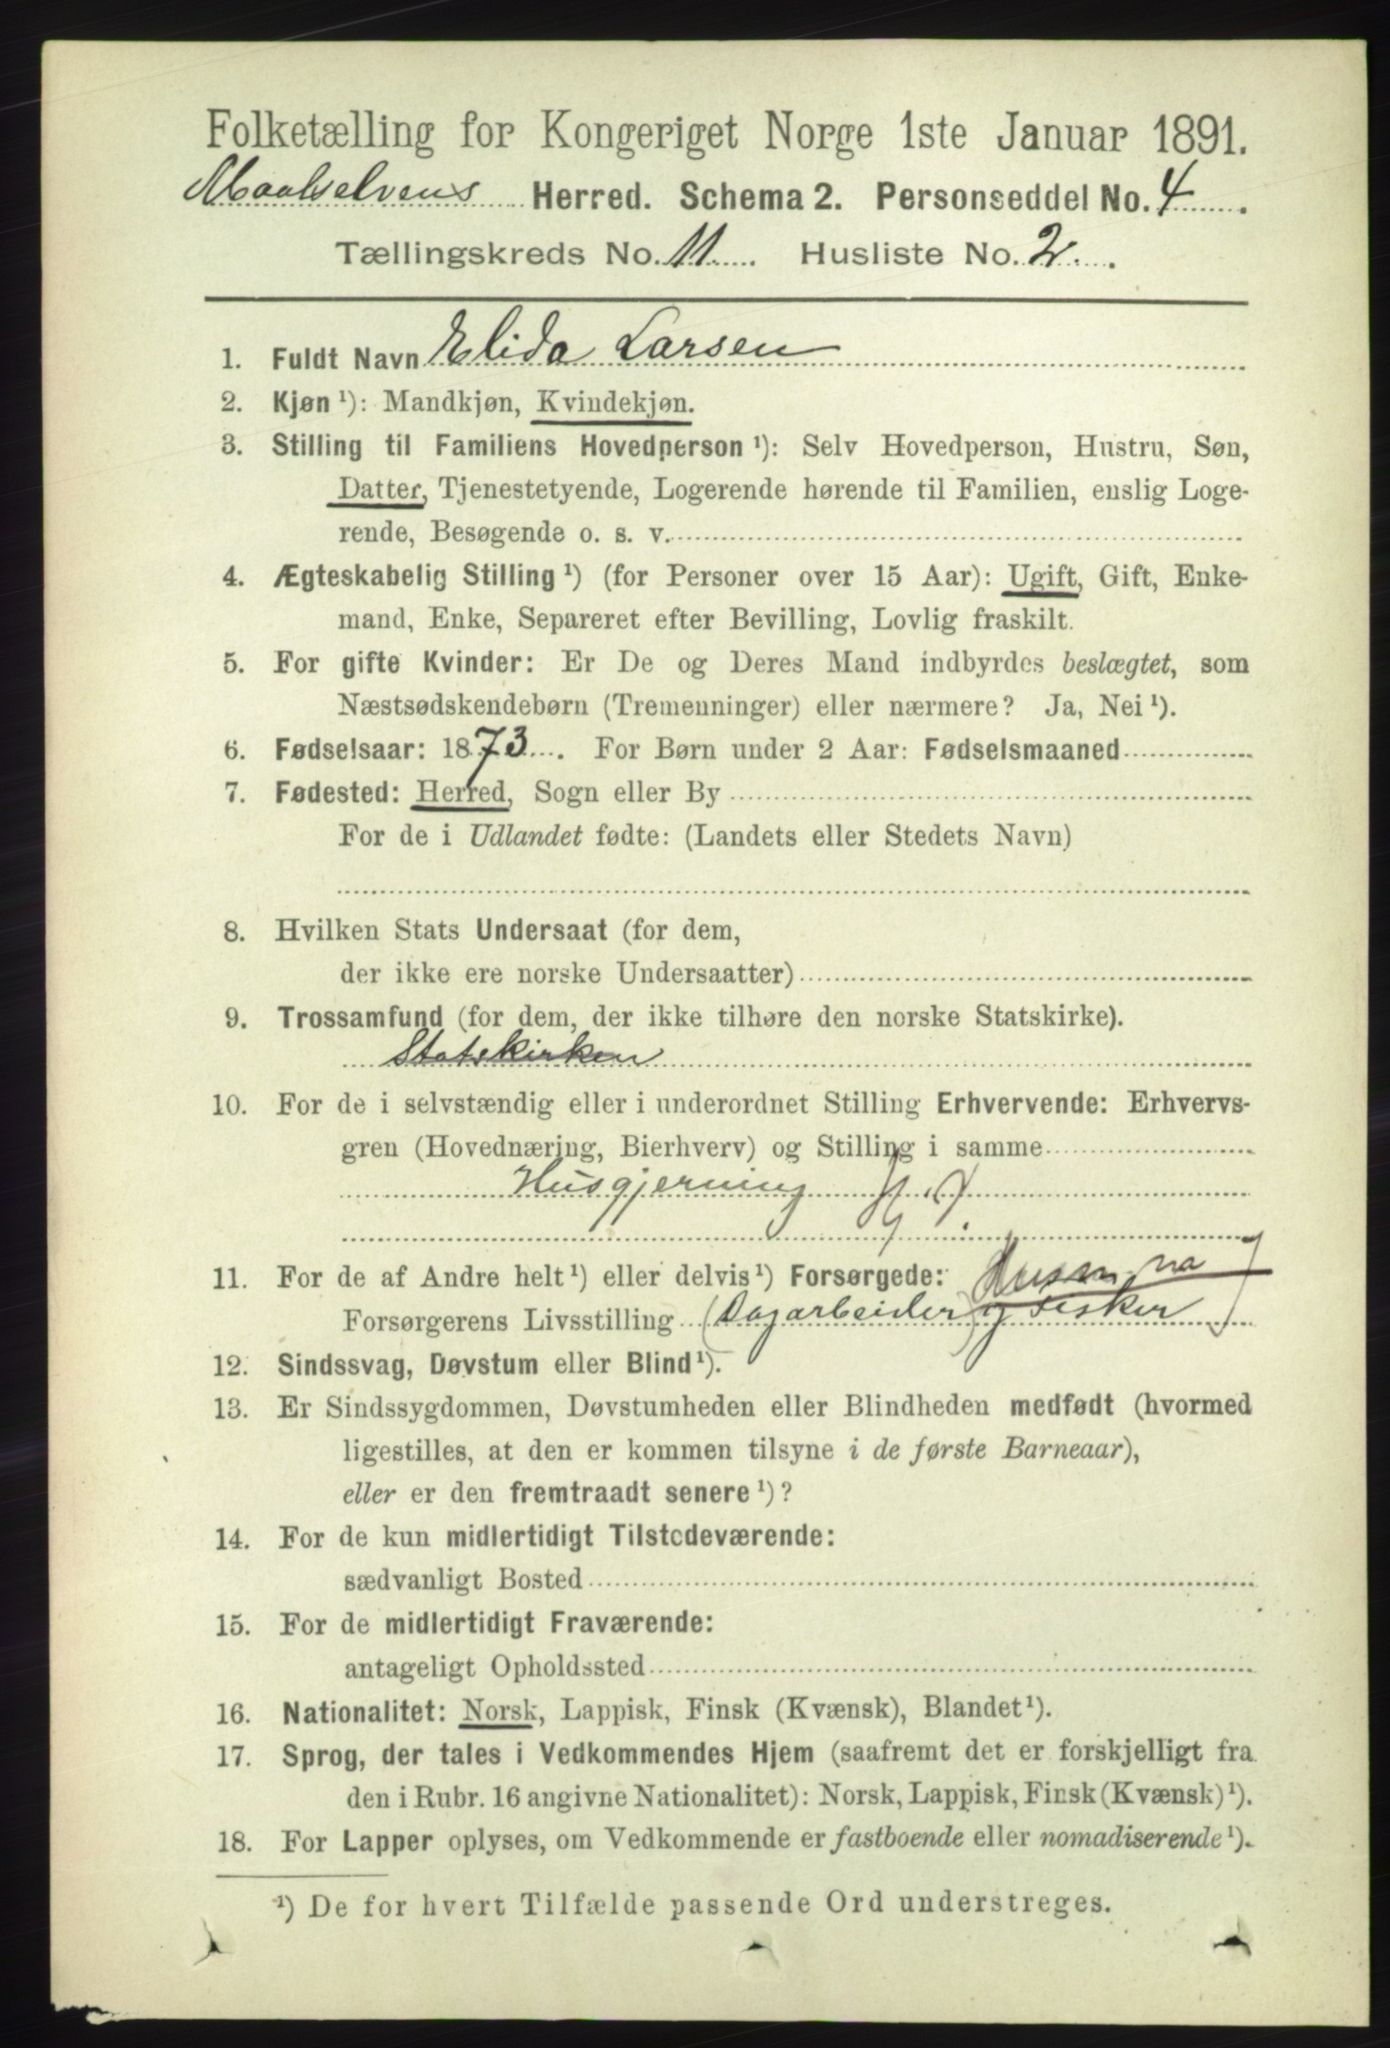 Folketælling for Kongeriget Norge 1ste Januar 1891.
Maalselvens Herred. Schema 2. Personseddel No. 4.
Tællingskreds No. 11. Husliste No. 2.
1. Fuldt Navn Elida Larsen
2. Kjøn ¹): Mandkjøn, Kvindekjøn.
3. Stilling til Familiens Hovedperson ¹): Selv Hovedperson, Hustru, Søn,
Datter, Tjenestetyende, Logerende hørende til Familien, enslig Loge-
rende, Besøgende o. s. v.
4. Ægteskabelig Stilling ¹) (for Personer over 15 Aar): Ugift, Gift, Enke-
mand, Enke, Separeret efter Bevilling, Lovlig fraskilt.
5. For gifte Kvinder: Er De og Deres Mand indbyrdes beslægtet, som
Næstsødskendebørn (Tremenninger) eller nærmere? Ja, Nei ¹).
6. Fødselsaar: 1873. For Børn under 2 Aar: Fødselsmaaned
7. Fødested: Herred, Sogn eller By
For de i Udlandet fødte: (Landets eller Stedets Navn)
8. Hvilken Stats Undersaat (for dem,
der ikke ere norske Undersaatter)
9. Trossamfund (for dem, der ikke tilhøre den norske Statskirke).
Statskirken
10. For de i selvstændig eller i underordnet Stilling Erhvervende: Erhvervs-
gren (Hovednæring, Bierhverv) og Stilling i samme
Husgjerning
11. For de af Andre helt ¹) eller delvis ¹) Forsørgede:
Forsørgerens Livsstilling (Dagarbeider) og Fisker
12. Sindssvag, Døvstum eller Blind ¹).
13. Er Sindssygdommen, Døvstumheden eller Blindheden medfødt (hvormed
ligestilles, at den er kommen tilsyne i de første Barneaar),
eller er den fremtraadt senere ¹)?
14. For de kun midlertidigt Tilstedeværende:
sædvanligt Bosted
15. For de midlertidigt Fraværende:
antageligt Opholdssted
16. Nationalitet: Norsk, Lappisk, Finsk (Kvænsk), Blandet ¹).
17. Sprog, der tales i Vedkommendes Hjem (saafremt det er forskjelligt fra
den i Rubr. 16 angivne Nationalitet): Norsk, Lappisk, Finsk (Kvænsk) ¹).
18. For Lapper oplyses, om Vedkommende er fastboende eller nomadiserende ¹).
¹) De for hvert Tilfælde passende Ord understreges.